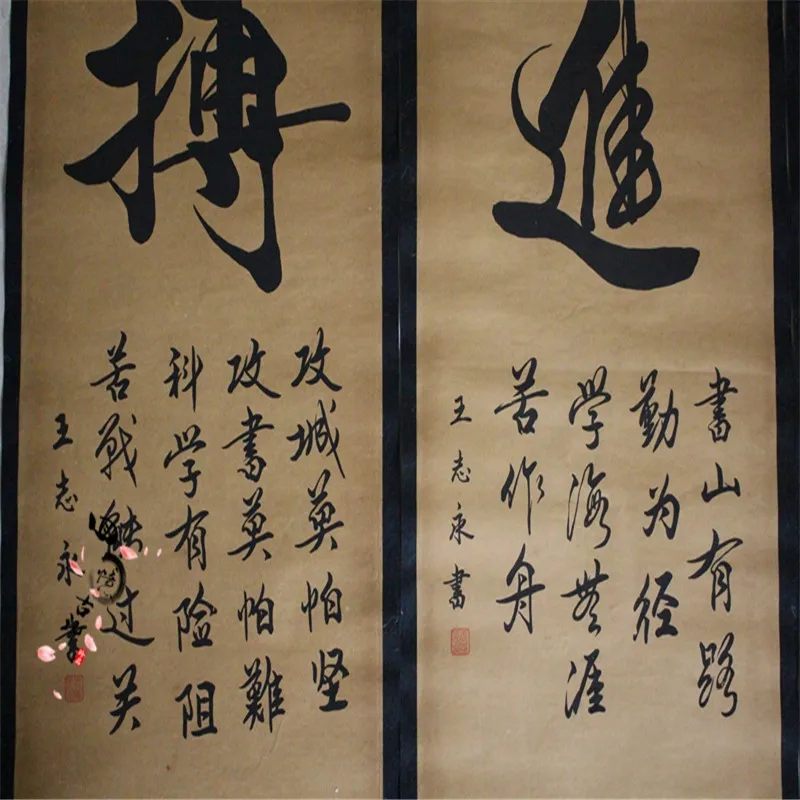 進
書山有路
勤为径
学海無涯
苦作舟
王志永書
搏
攻城莫怕坚
攻書莫怕難
科学有险阻
苦战能过关
王志永書